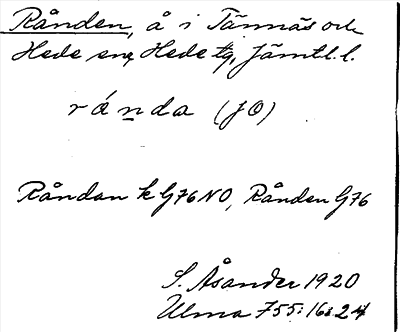 Rånden, å i Tännäs och
Hede snr Hede tg, Jämtl. l.
rånda (JO)
Råndan k G76NO, Rånden G76
S. Åsander 1920
Ulma 755:16:24